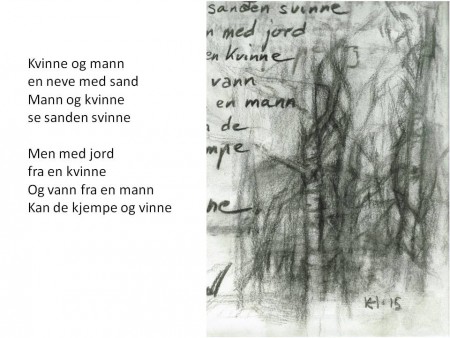 Kvinne og mann
en neve med sand
Mann og kvinne
se sanden svinne
Men med jord
fra en kvinne
Og vann fra en mann
Kan de kjempe og vinne
sanden svinne
med jord
en kvinne
vann
en mann
de